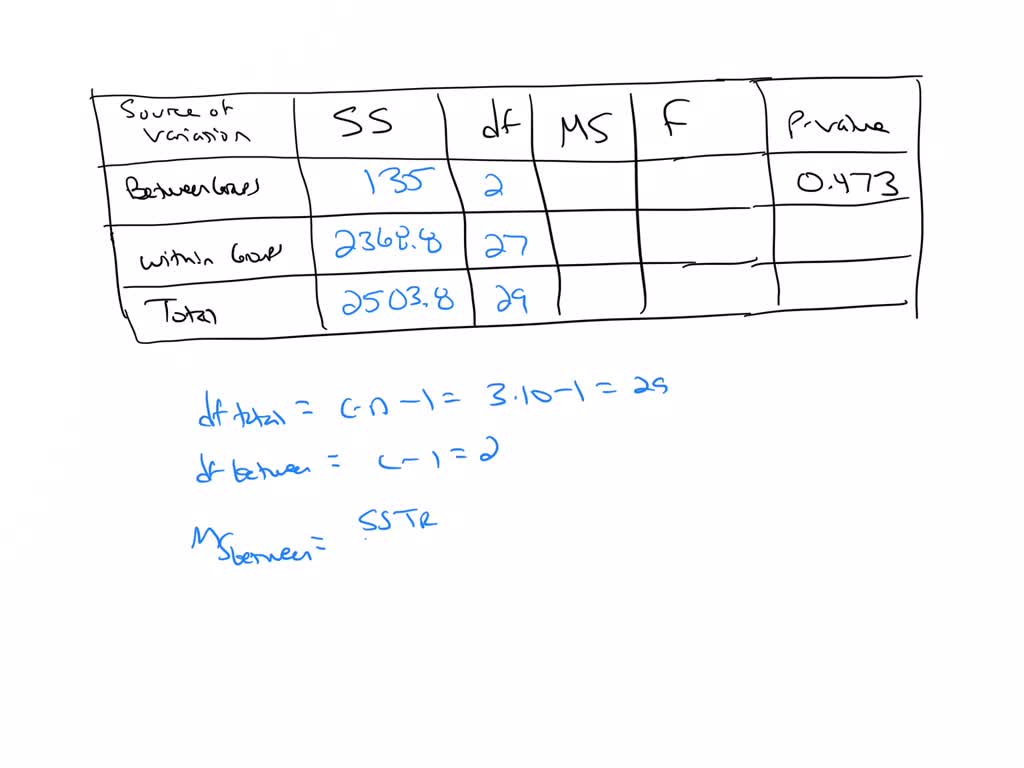 Source of Variation SS df MS F P-value
Between Groups 135 2 0.473
Within Groups 2368.8 27
Total 2503.8 29
df total = c·n - 1 = 3·10 - 1 = 29
df between = c - 1 = 2
MS between = SSTR